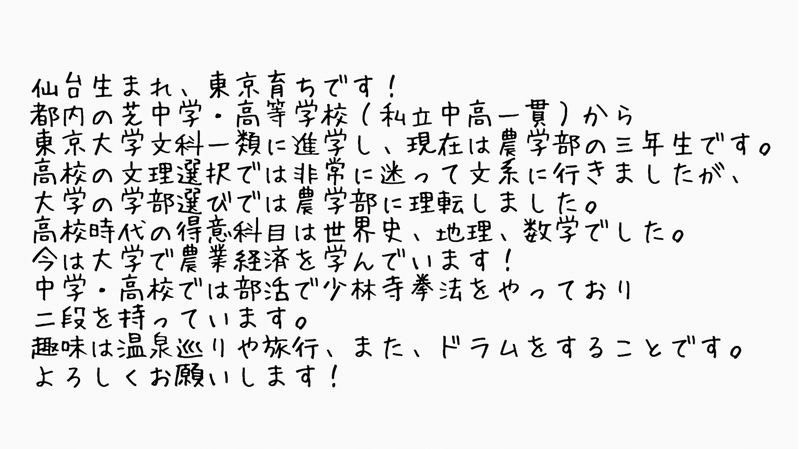 仙台生まれ、東京育ちです！
都内の芝中学・高等学校（私立中高一貫）から
東京大学文科一類に進学し、現在は農学部の三年生です。
高校の文理選択では非常に迷って文系に行きましたが、
大学の学部選びでは農学部に理転しました。
高校時代の得意科目は世界史、地理、数学でした。
今は大学で農業経済を学んでいます！
中学・高校では部活で少林寺拳法をやっており
二段を持っています。
趣味は温泉巡りや旅行、また、ドラムをすることです。
よろしくお願いします！